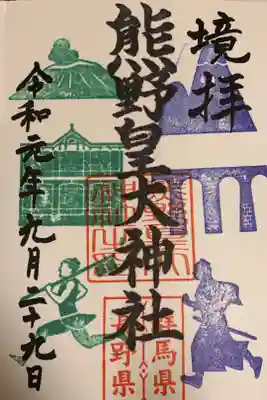 境拝
熊野皇大神社
群馬県
長野県
令和元年九月二十九日